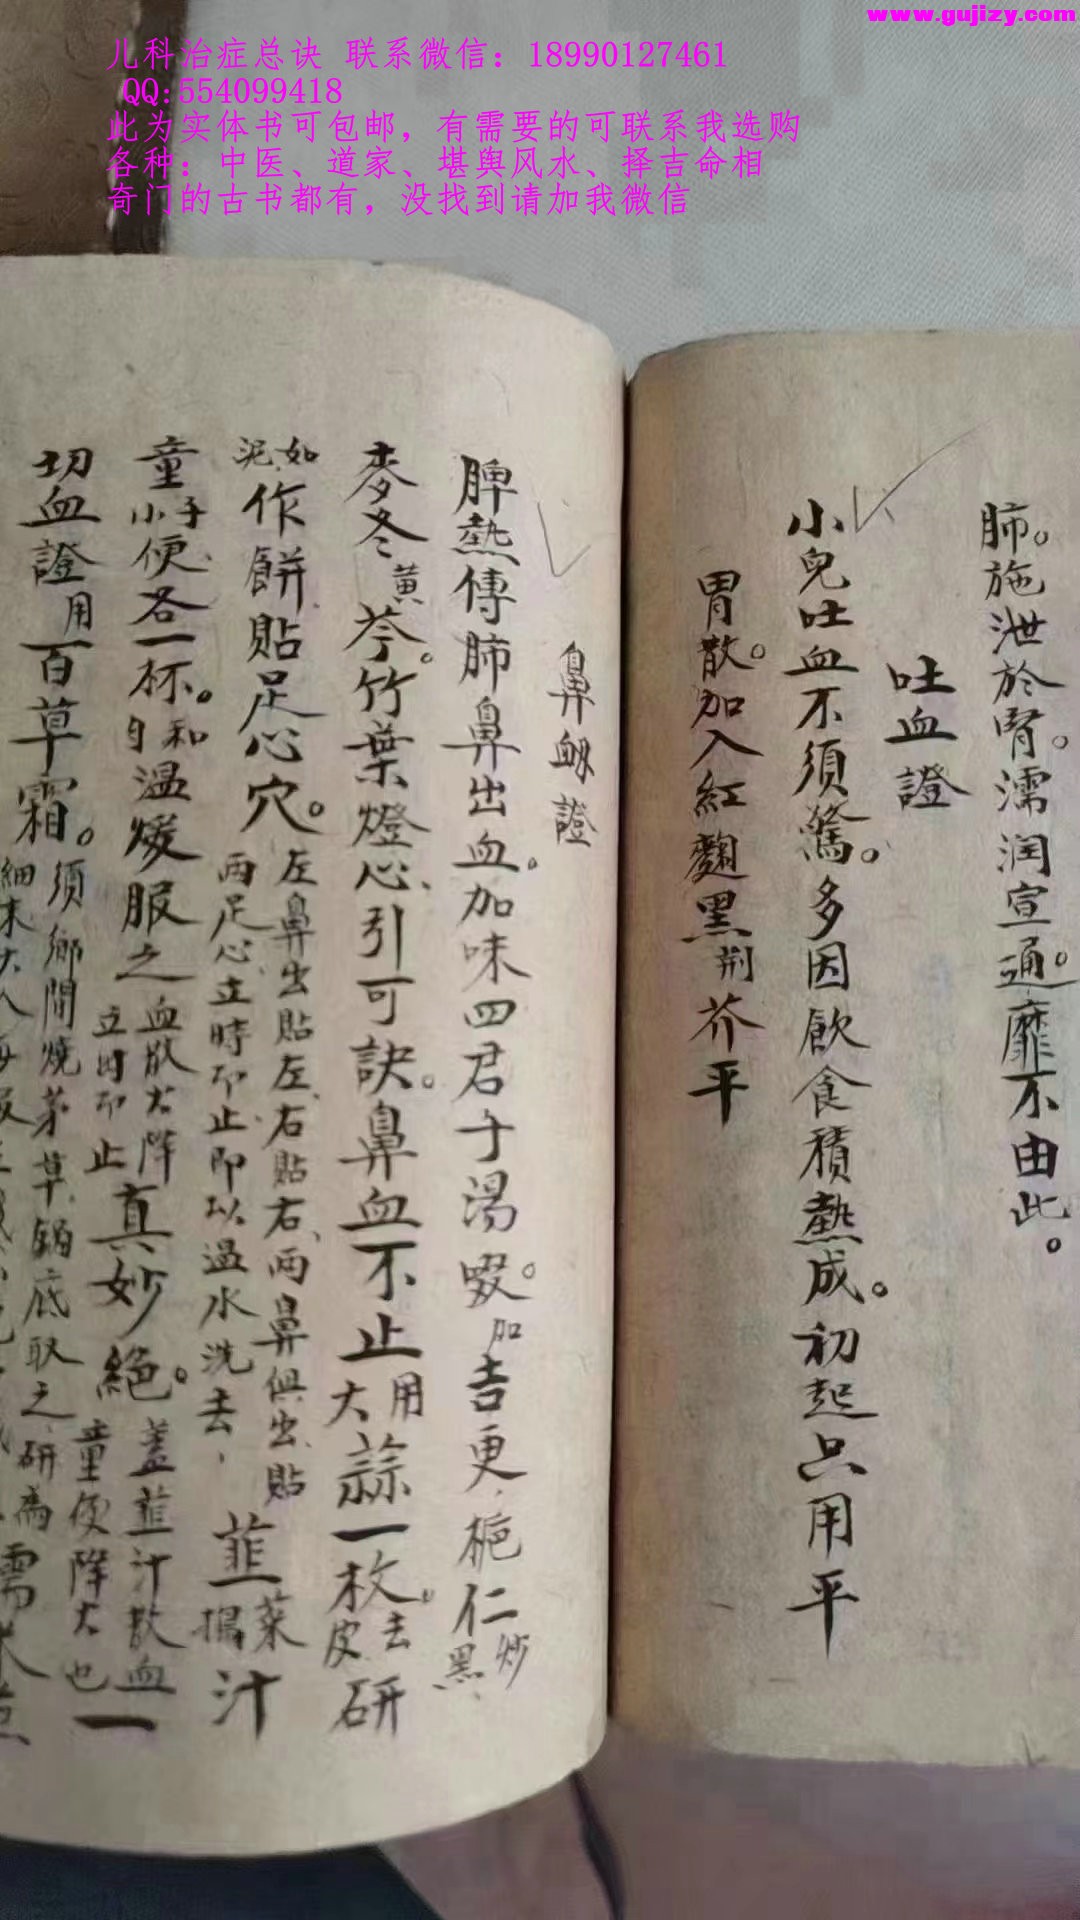 www.gujizy.com
儿科治症总诀 联系微信：18990127461
QQ:554099418
此为实体书可包邮，有需要的可联系我选购
各种：中医、道家、堪舆风水、择吉命相
奇门的古书都有，没找到请加我微信
肺。施泄於腎。濡润宣通。靡不由此。
吐血證
小兒吐血不須驚。多因飲食積熱成。初起只用平
胃散。加入紅麴黑荆芥平
鼻衂證
脾熱傳肺鼻出血。加味四君子湯啜。加吉更、梔仁炒黑、
麥冬黄芩。竹葉燈心、引可訣。鼻血不止用大蒜一枚。去皮研
如泥作餅貼足心穴。左鼻出貼左、右貼右、兩鼻俱出、貼兩足心、立時即止即以温水洗去，韮菜搗汁
童子小便各一杯。和匀温煖服之血散火降立固即止真妙絶。蓋韮汁散血童便降火也一
切血證用百草霜。須鄉間燒茅草鍋底取之、研為細末大人每服